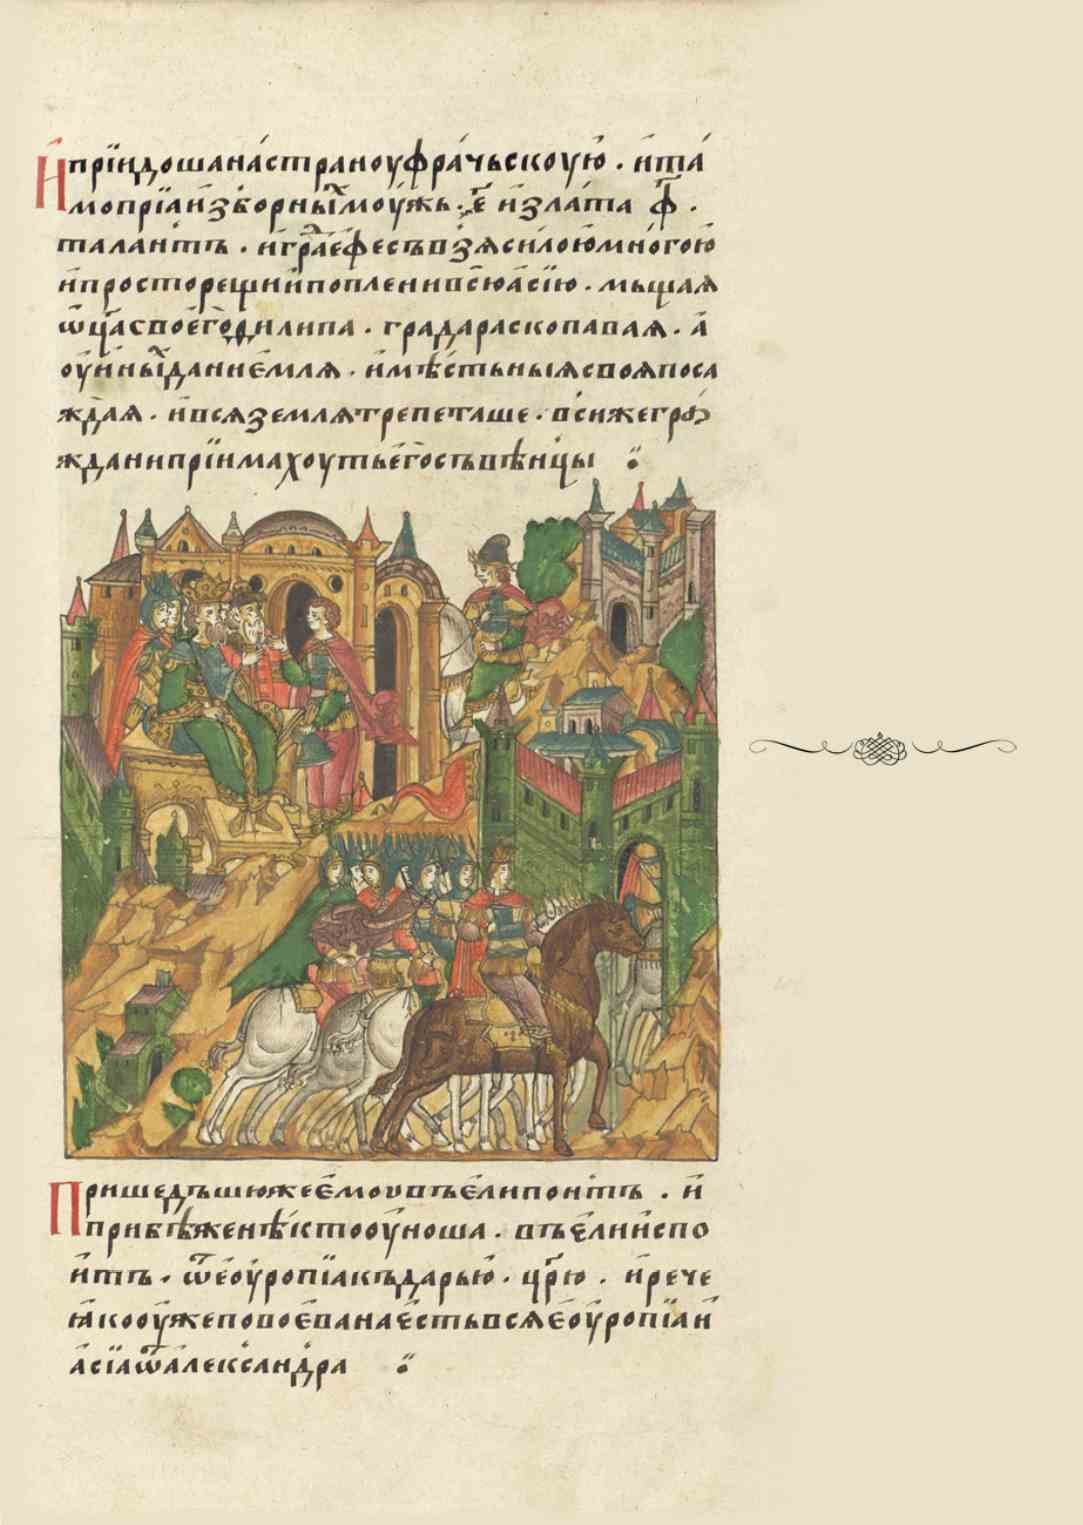 И҆прїидошана́странꙋфра́чьскоую̀ . и҆та́
мопрїа̀и҆збо́рныⷯмоу́жь . ҂е҃ и҆зла́та ф҃ .
тала́нтъ . и҆граⷣе́фе́съвзѧ́си́лоюмно́гою
и҆про́сторещѝи҆попленѝвсю̀а҆сїю . мьщаѧ
ѡц҃а̀своего̀филипа . града̀раскопаваѧ . а҆
оу҆и́ныⷯда́ние́млѧ . и҆мѣ́стьныѧсвоѧ̀поса
жда́ѧ . и҆всѧ̀землѧ̀трепета́ше . вси́жегра́
жданѝпрїимахоутье҆го̀съвѣнцы̀
Прише́дъшюжее҆моу̀въе҆липо́нтъ . и҆
прибѣ́женѣ́ктооу҆́ноша . въе҆лиспо
и́тъ . ѿе҆оуро́пїакъда́рью . цр҃ю̀ . и҆речѐ
ꙗ҆́кооу҆жѐповоева́нае҆́стьвсѧ̀е҆оуро́пїаи҆
а҆сїаѿа҆леѯа́ндра